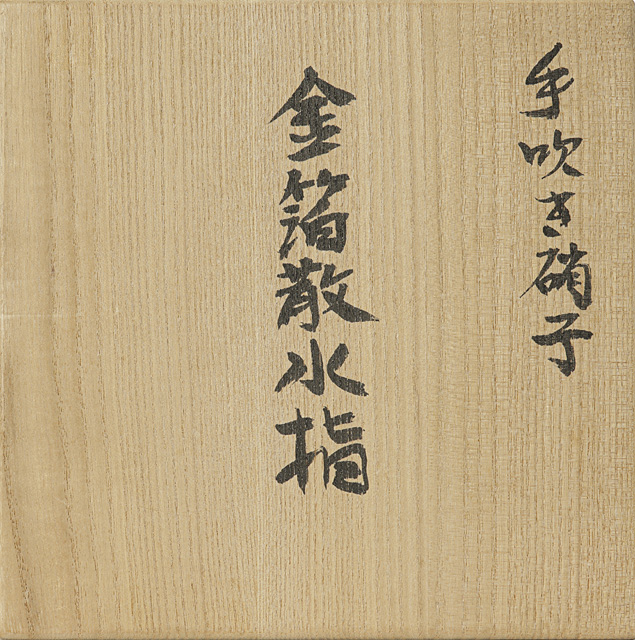 手吹き硝子
金箔散水指